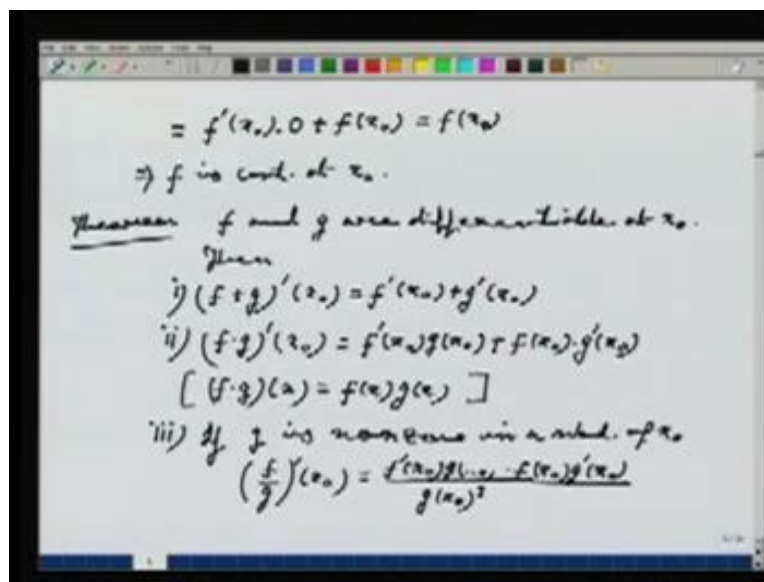 = f'(x₀).0 + f(x₀) = f(x₀)
⇒ f is cont. at x₀.
Theorem f and g are differentiable at x₀.
Then
i) (f + g)'(x₀) = f'(x₀) + g'(x₀)
ii) (f·g)'(x₀) = f'(x₀)g(x₀) + f(x₀)·g'(x₀)
[ (f·g)(x) = f(x)g(x) ]
iii) If g is nonzero in a nbd. of x₀
(f/g)'(x₀) = f'(x₀)g(x₀) - f(x₀)g'(x₀) / g(x₀)²